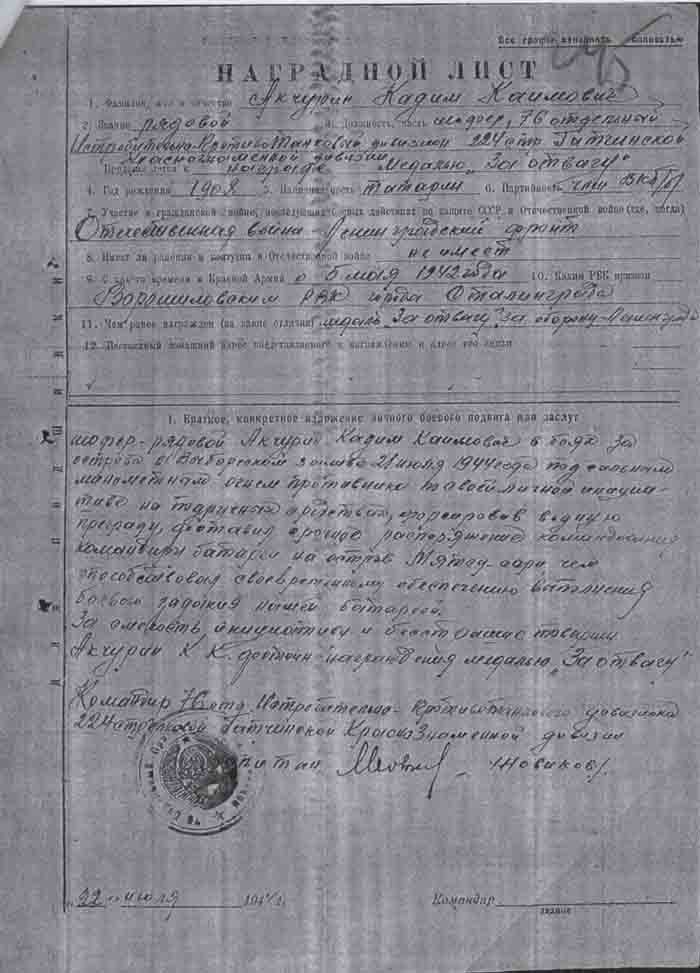 Все графы заполнять полностью
НАГРАДНОЙ ЛИСТ
1. Фамилия, имя и отчество Акчурин Кадим Каимович
2. Звание рядовой 3. Должность, часть шофер, 76 отдельный
Истребительно-Противотанковый дивизион 224 стр. Гатчинской
Краснознаменной дивизии
Представляется к награде Медалью „За отвагу"
4. Год рождения 1908 5. Национальность татарин 6. Партийность член ВКП/б/
7. Участие в гражданской войне, последующих боевых действиях по защите СССР и Отечественной войне (где, когда)
Отечественная война - Ленинградский фронт
8. Имеет ли ранения и контузии в Отечественной войне не имеет
9. С какого времени в Красной Армии с 5 мая 1942 года 10. Каким РВК призван
Ворошиловским РВК города Сталинграда
11. Чем ранее награжден (за какие отличия) медаль „За отвагу", за оборону Ленинграда
12. Постоянный домашний адрес представляемого к награждению и адрес его семьи
I. Краткое, конкретное изложение личного боевого подвига или заслуг
шофер-рядовой Акчурин Кадим Каимович в боях за
острова в Выборгском заливе июля 1944 года под сильным
огнем противника по своей личной инициа-
тиве на подручных средствах, форсировав водную
преграду, доставил срочное распоряжение командования
командиру батареи на остров чем
способствовал своевременному обеспечению выполнения
боевой задачи нашей батареей.
За смелость инициативу и бесстрашие товарищ
Акчурин К К. достоин награждения медалью „За отвагу"
Командир 76 отд. Истребительно-Противотанкового дивизиона
224 стрелковой Гатчинской Краснознаменной дивизии
капитан /Новиков/
„22" июля 1944 г. Командир
звание